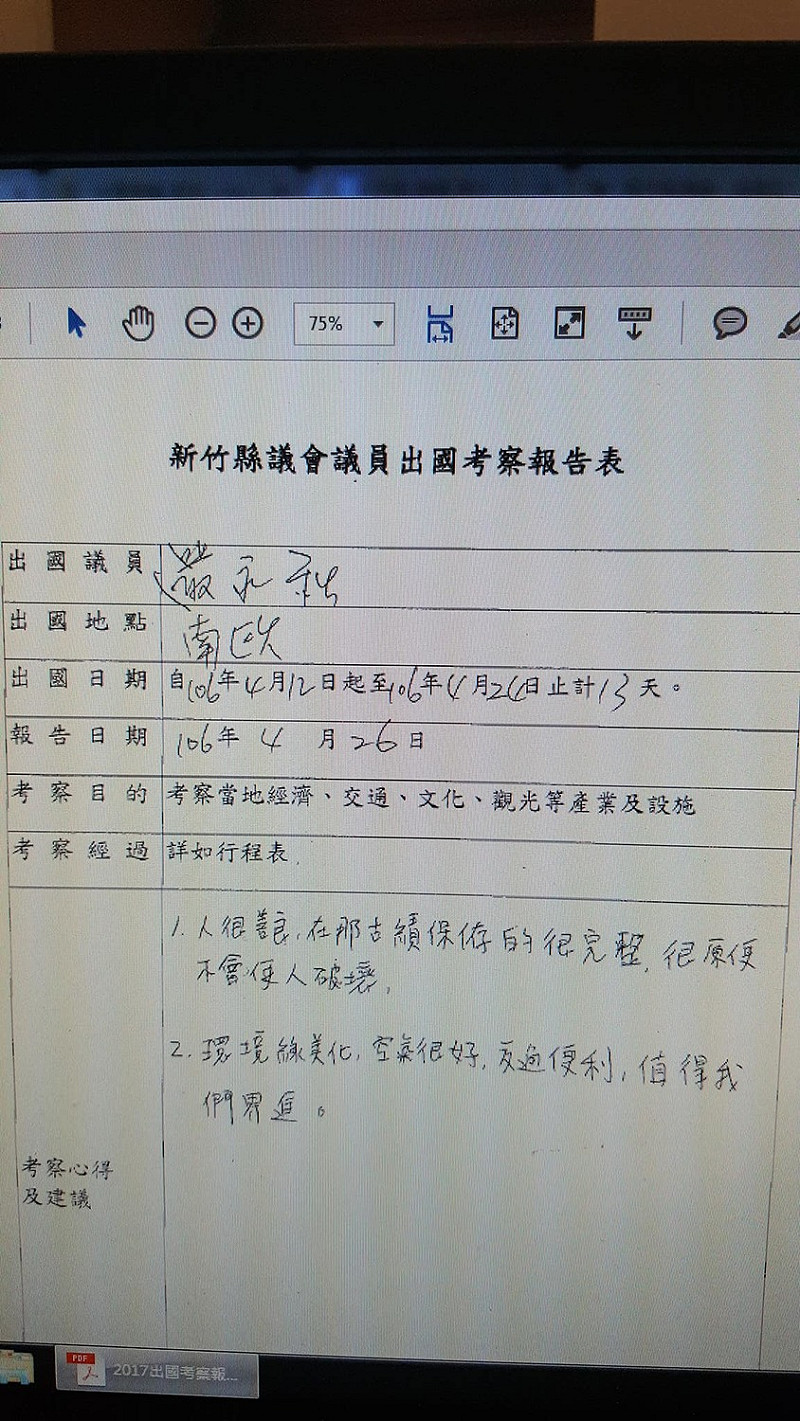 75%
新竹縣議會議員出國考察報告表
出國議員 嚴永秋
出國地點 南欧
出國日期 自106年4月12日起至106年4月24日止計13天。
報告日期 106年 4 月 26 日
考察目的 考察當地經濟、交通、文化、觀光等產業及設施
考察經過 詳如行程表
1. 人很善良,在那古績保存的很完整,很原便
不會便人破壞,
2. 環境綠美化,空氣很好,交通便利,值得我
們界進。
考察心得
及建議
PDF
2017出國考察報...